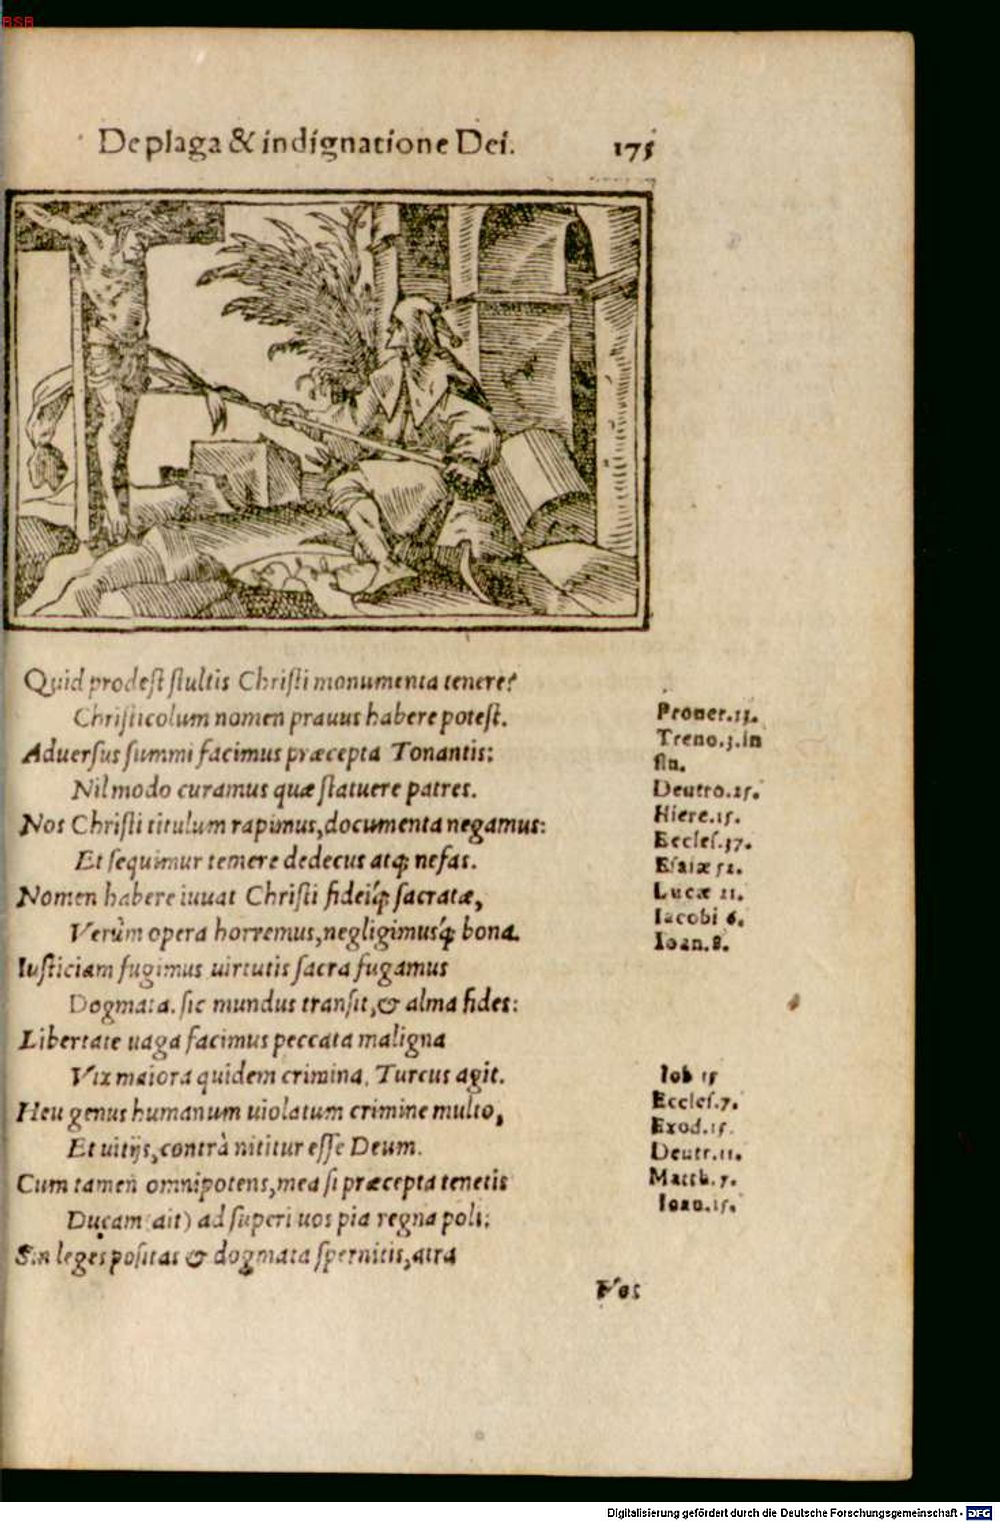 BSB
De plaga & indignatione Dei. 175
Quid prodest stultis Christi monumenta tenere?
Christicolum nomen prauus habere potest.
Aduersus summi facimus præcepta Tonantis:
Nil modo curamus quæ statuere patres.
Nos Christi titulum rapimus, documenta negamus:
Et sequimur temere dedecus atq; nefas.
Nomen habere iuuat Christi fideiq́; sacratæ,
Verùm opera horremus, negligimusq́; bona.
Iusticiam fugimus uirtutis sacra fugamus
Dogmata. sic mundus transit, & alma fides:
Libertate uaga facimus peccata maligna
Vix maiora quidem crimina, Turcus agit.
Heu genus humanum uiolatum crimine multo,
Et uitijs, contrà nititur esse Deum.
Cum tamen omnipotens, mea si præcepta tenetis
Ducam (ait) ad superi uos pia regna poli:
Sin leges positas & dogmata spernitis, atra
Vos
Prouer.13.
Treno.3.in
fin.
Deutro.25.
Hiere.15.
Eccles.37.
Esaiæ 52.
Lucæ 11.
Iacobi 6.
Ioan.8.
Iob 15
Eccles.7.
Exod.15.
Deutr.11.
Matth.7.
Ioan.15.
Digitalisierung gefördert durch die Deutsche Forschungsgemeinschaft - DFG